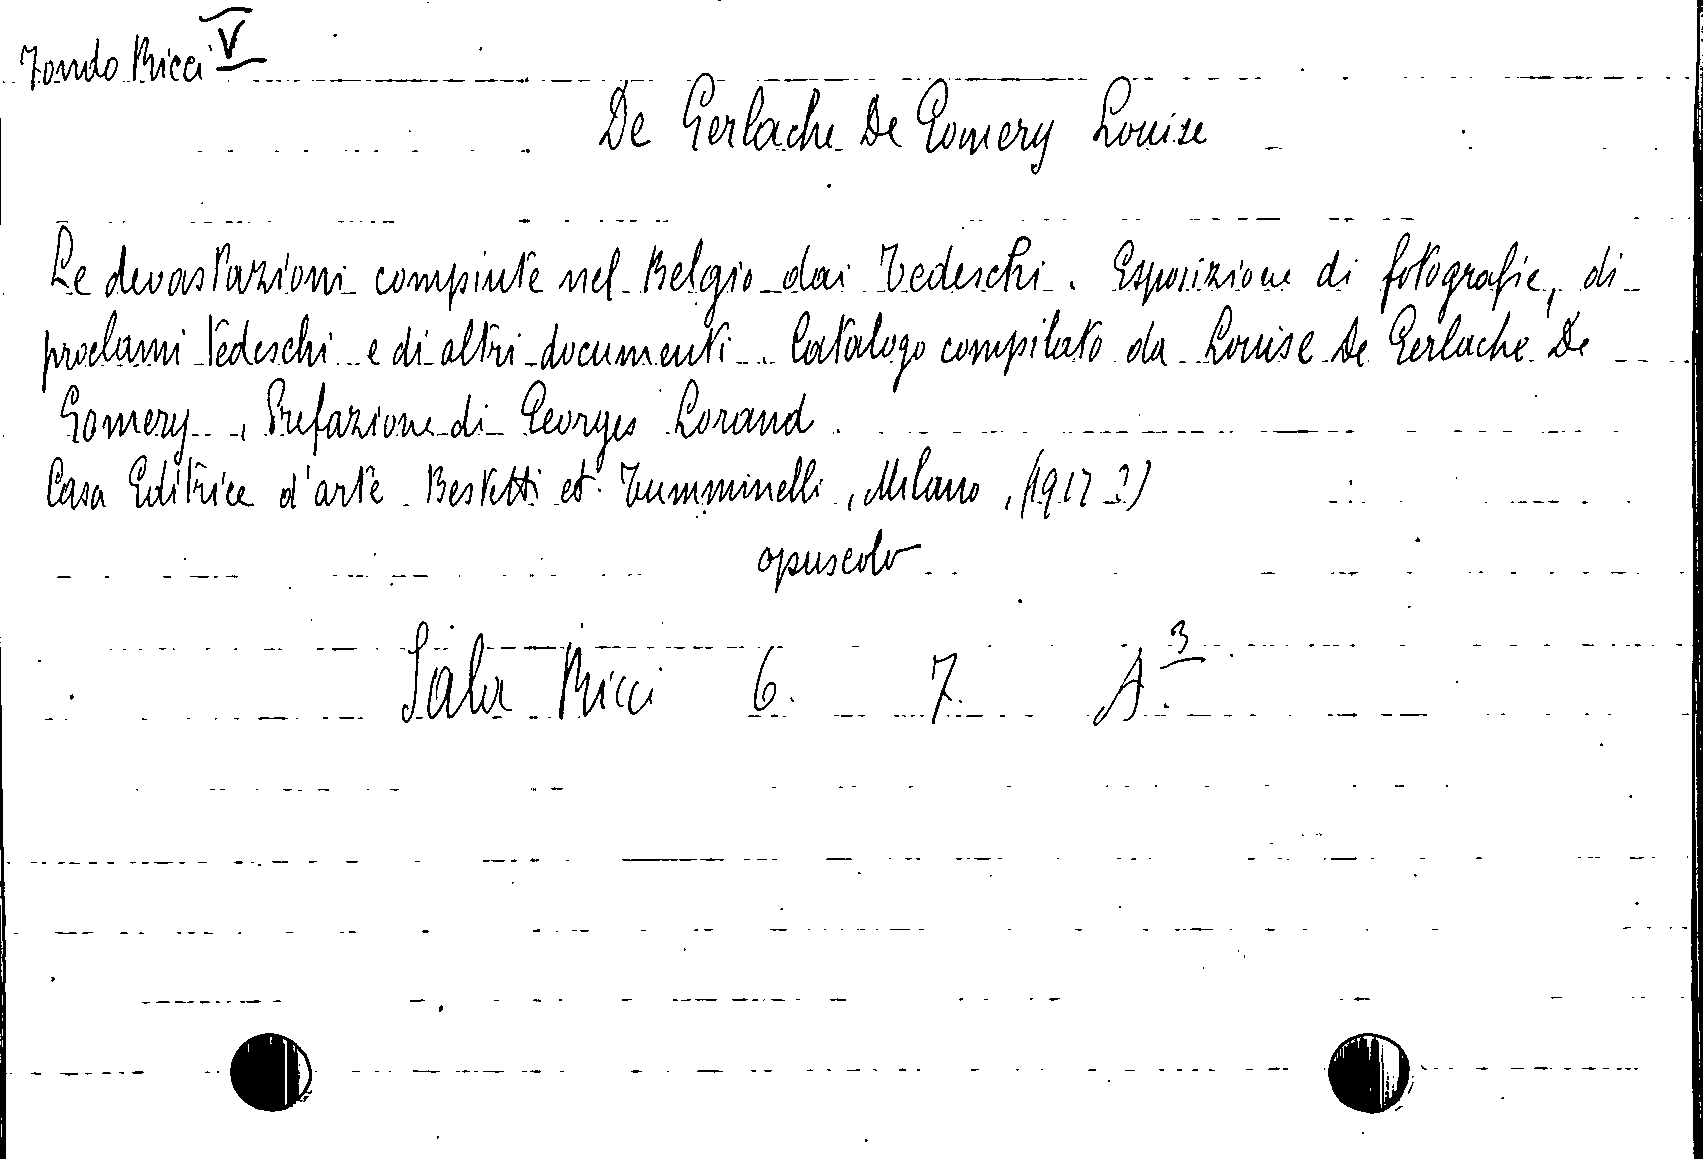 Fondo Ricci V
De Gerlache De Gomery Louise
Le devastazioni compiute nel Belgio dai Tedeschi. Esposizione di fotografie, di
proclami tedeschi e di altri documenti. Catalogo compilato da Louise De Gerlache De
Gomery, Prefazione di Georges Lorand.
Casa Editrice d'arte Bestetti et Tumminelli, Milano, (1917?)
opuscolo
Sala Ricci 6. 7. A.3